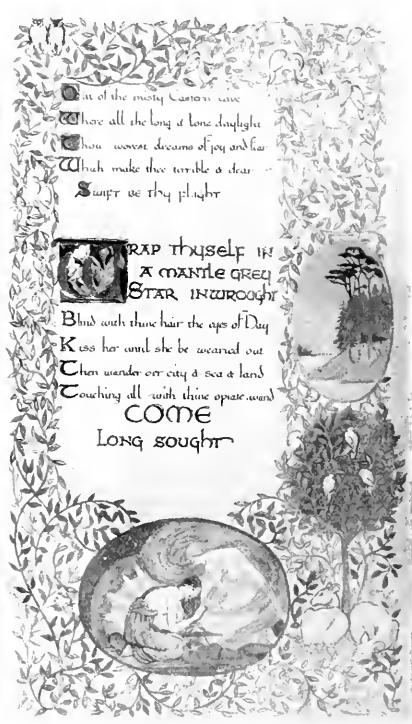 Out of the misty Eastern cave
Where all the long & lone daylight
Thou wovest dreams of joy and fear
Which make thee terrible & dear
Swift be thy flight
WRAP Thyself IN
A MANTLE GREY
STAR INWROUGHT
Blind with thine hair the eyes of Day
Kiss her until she be wearied out
Then wander oer city & sea & land
Touching all with thine opiate wand
COME
LONG SOUGHT